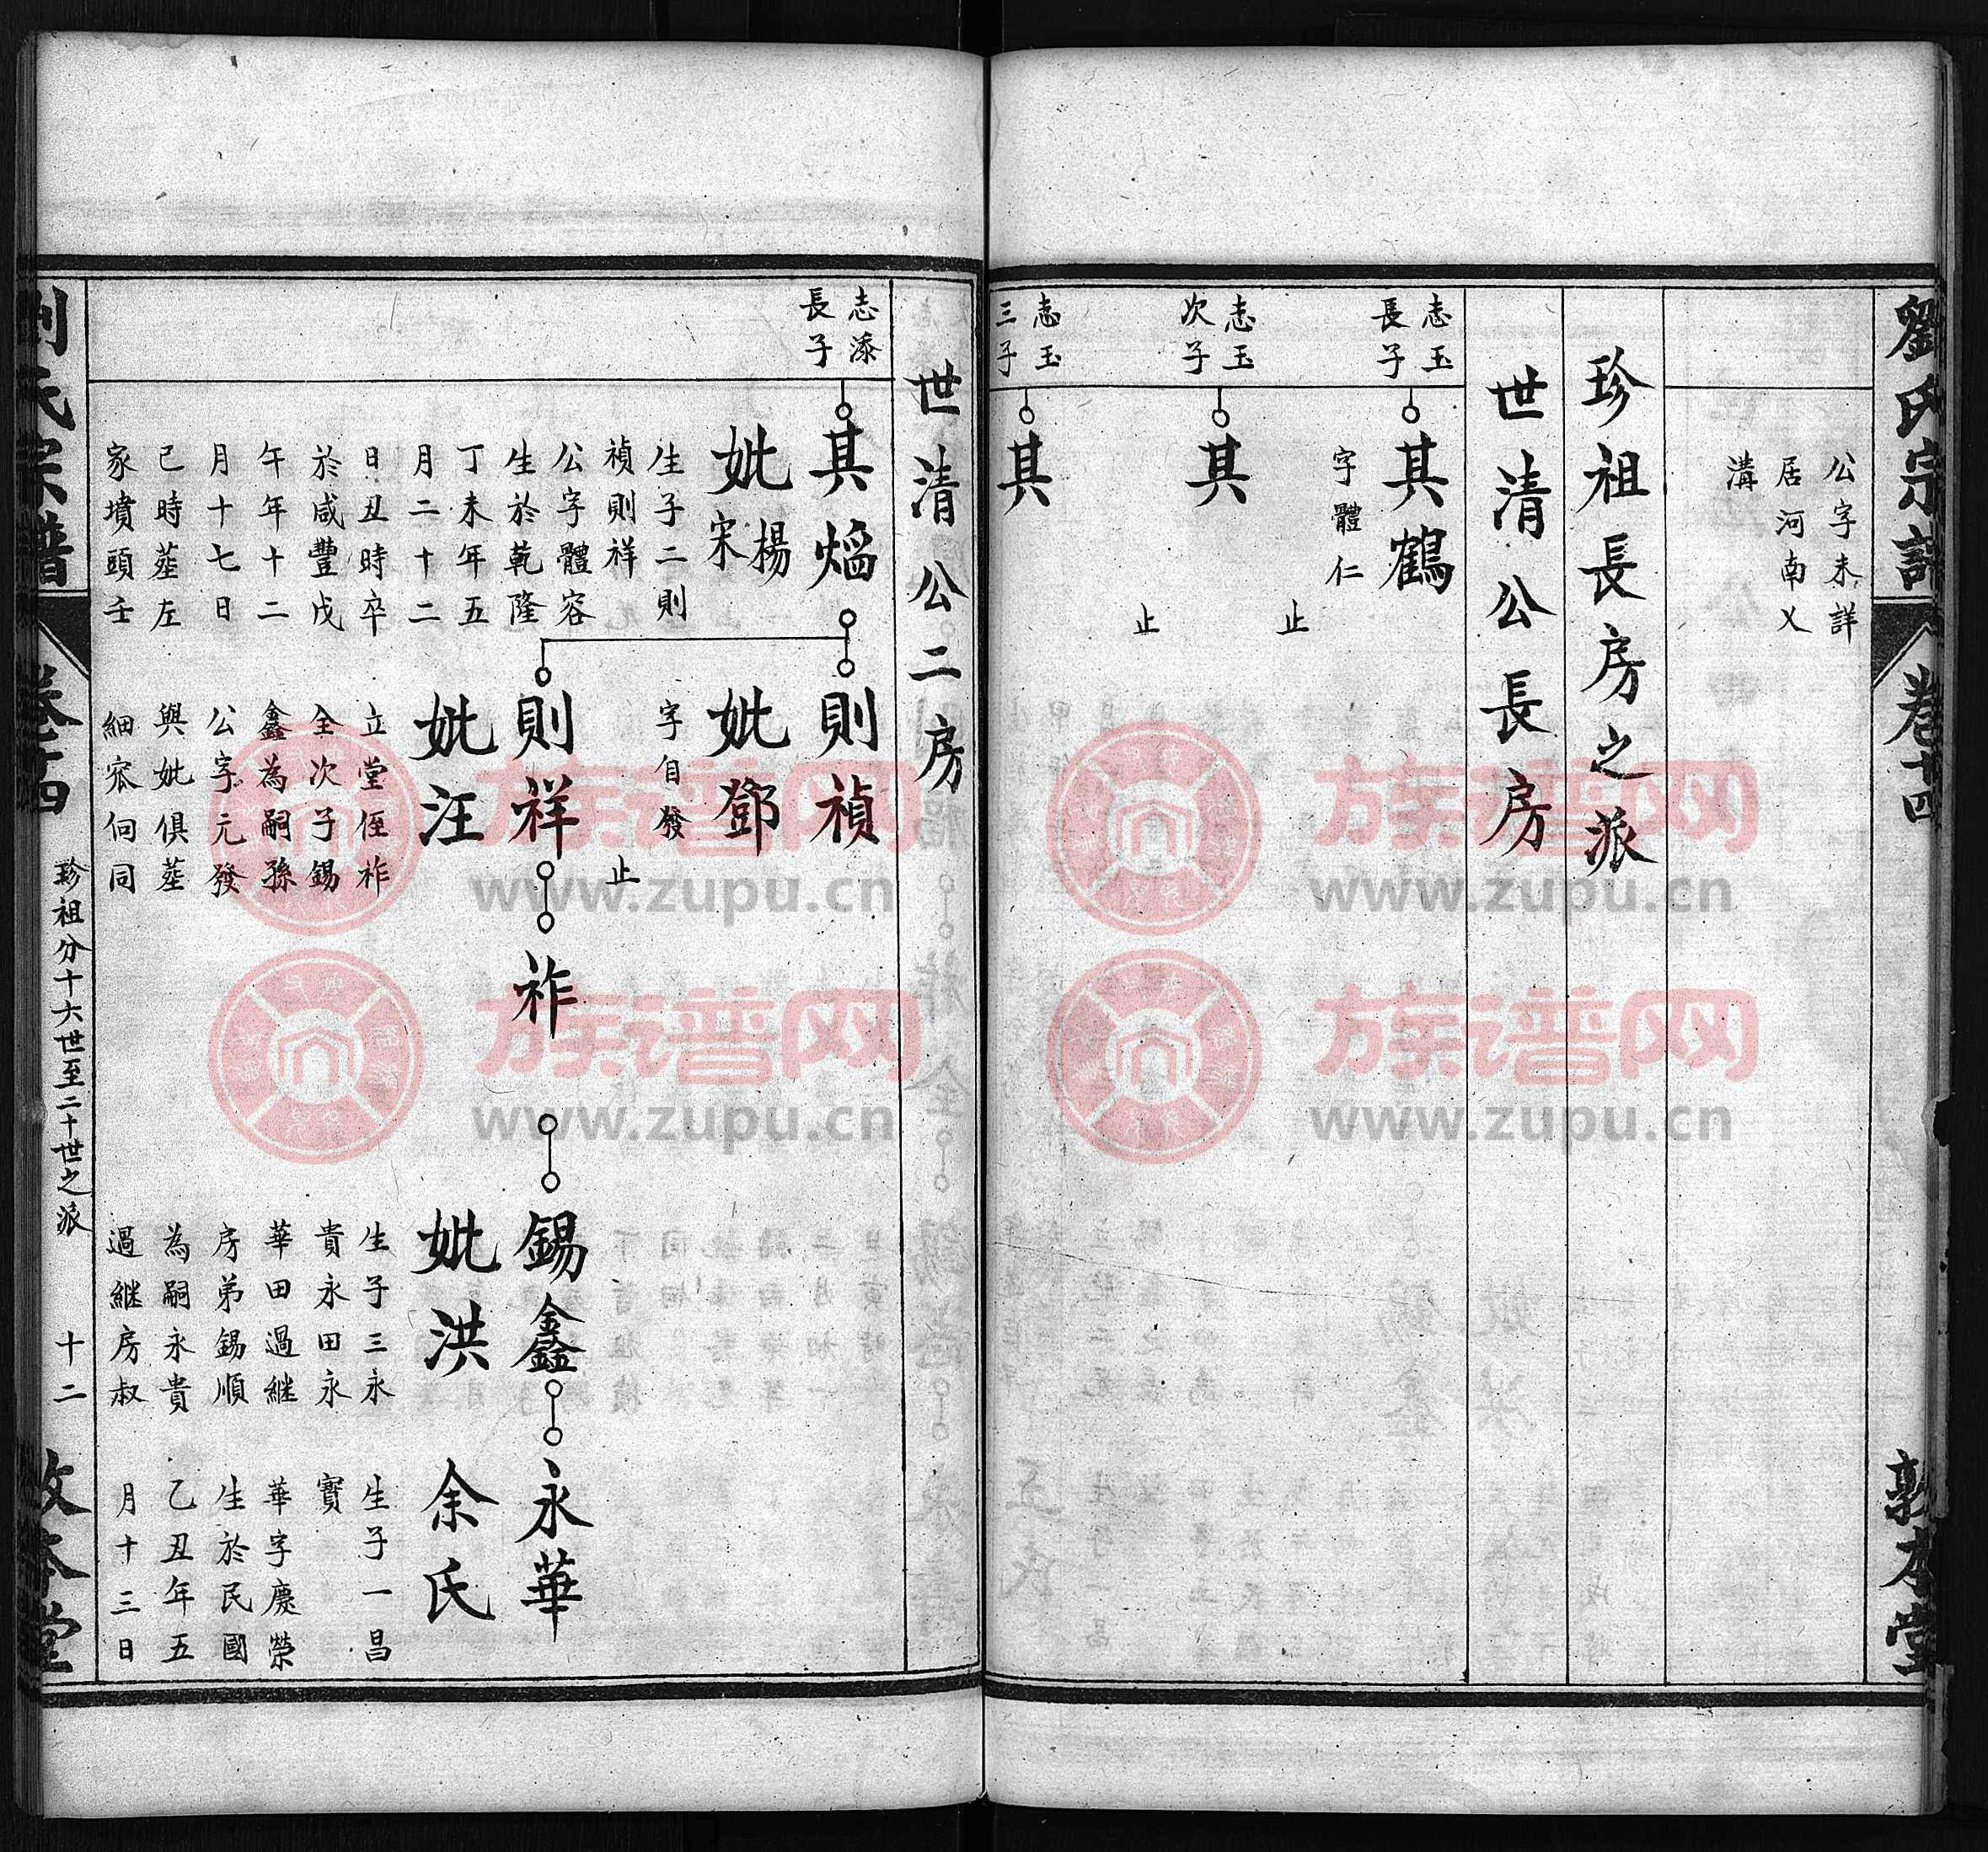 劉氏宗譜
卷十四
敦本堂
公字未詳
居河南乂
溝
珍祖長房之派
世清公長房
志玉
長子
其鶴
字體仁
止
志玉
次子
其
止
志玉
三子
其
世清公二房
志添
長子
其熖
妣楊
宋
生子二則
禎則祥
公字體容
生於乾隆
丁未年五
月二十二
日丑時卒
於咸豐戊
午年十二
月十七日
巳時塟左
家墳頭壬
則禎
妣鄧
字自發
止
則祥
妣汪
立堂侄祚
全次子錫
鑫為嗣孫
公字元發
與妣俱塟
細窊何同
祚
錫鑫
妣洪
生子三永
貴永田永
華田過継
房弟錫順
為嗣永貴
過継房叔
永華
余氏
生子一昌
寳
華字慶榮
生於民國
乙丑年五
月十三日
劉氏宗譜
卷十四
珍祖分十六世至二十世之派
十二
敦本堂
族谱网
www.zupu.cn
族谱网
www.zupu.cn
族谱网
www.zupu.cn
族谱网
www.zupu.cn